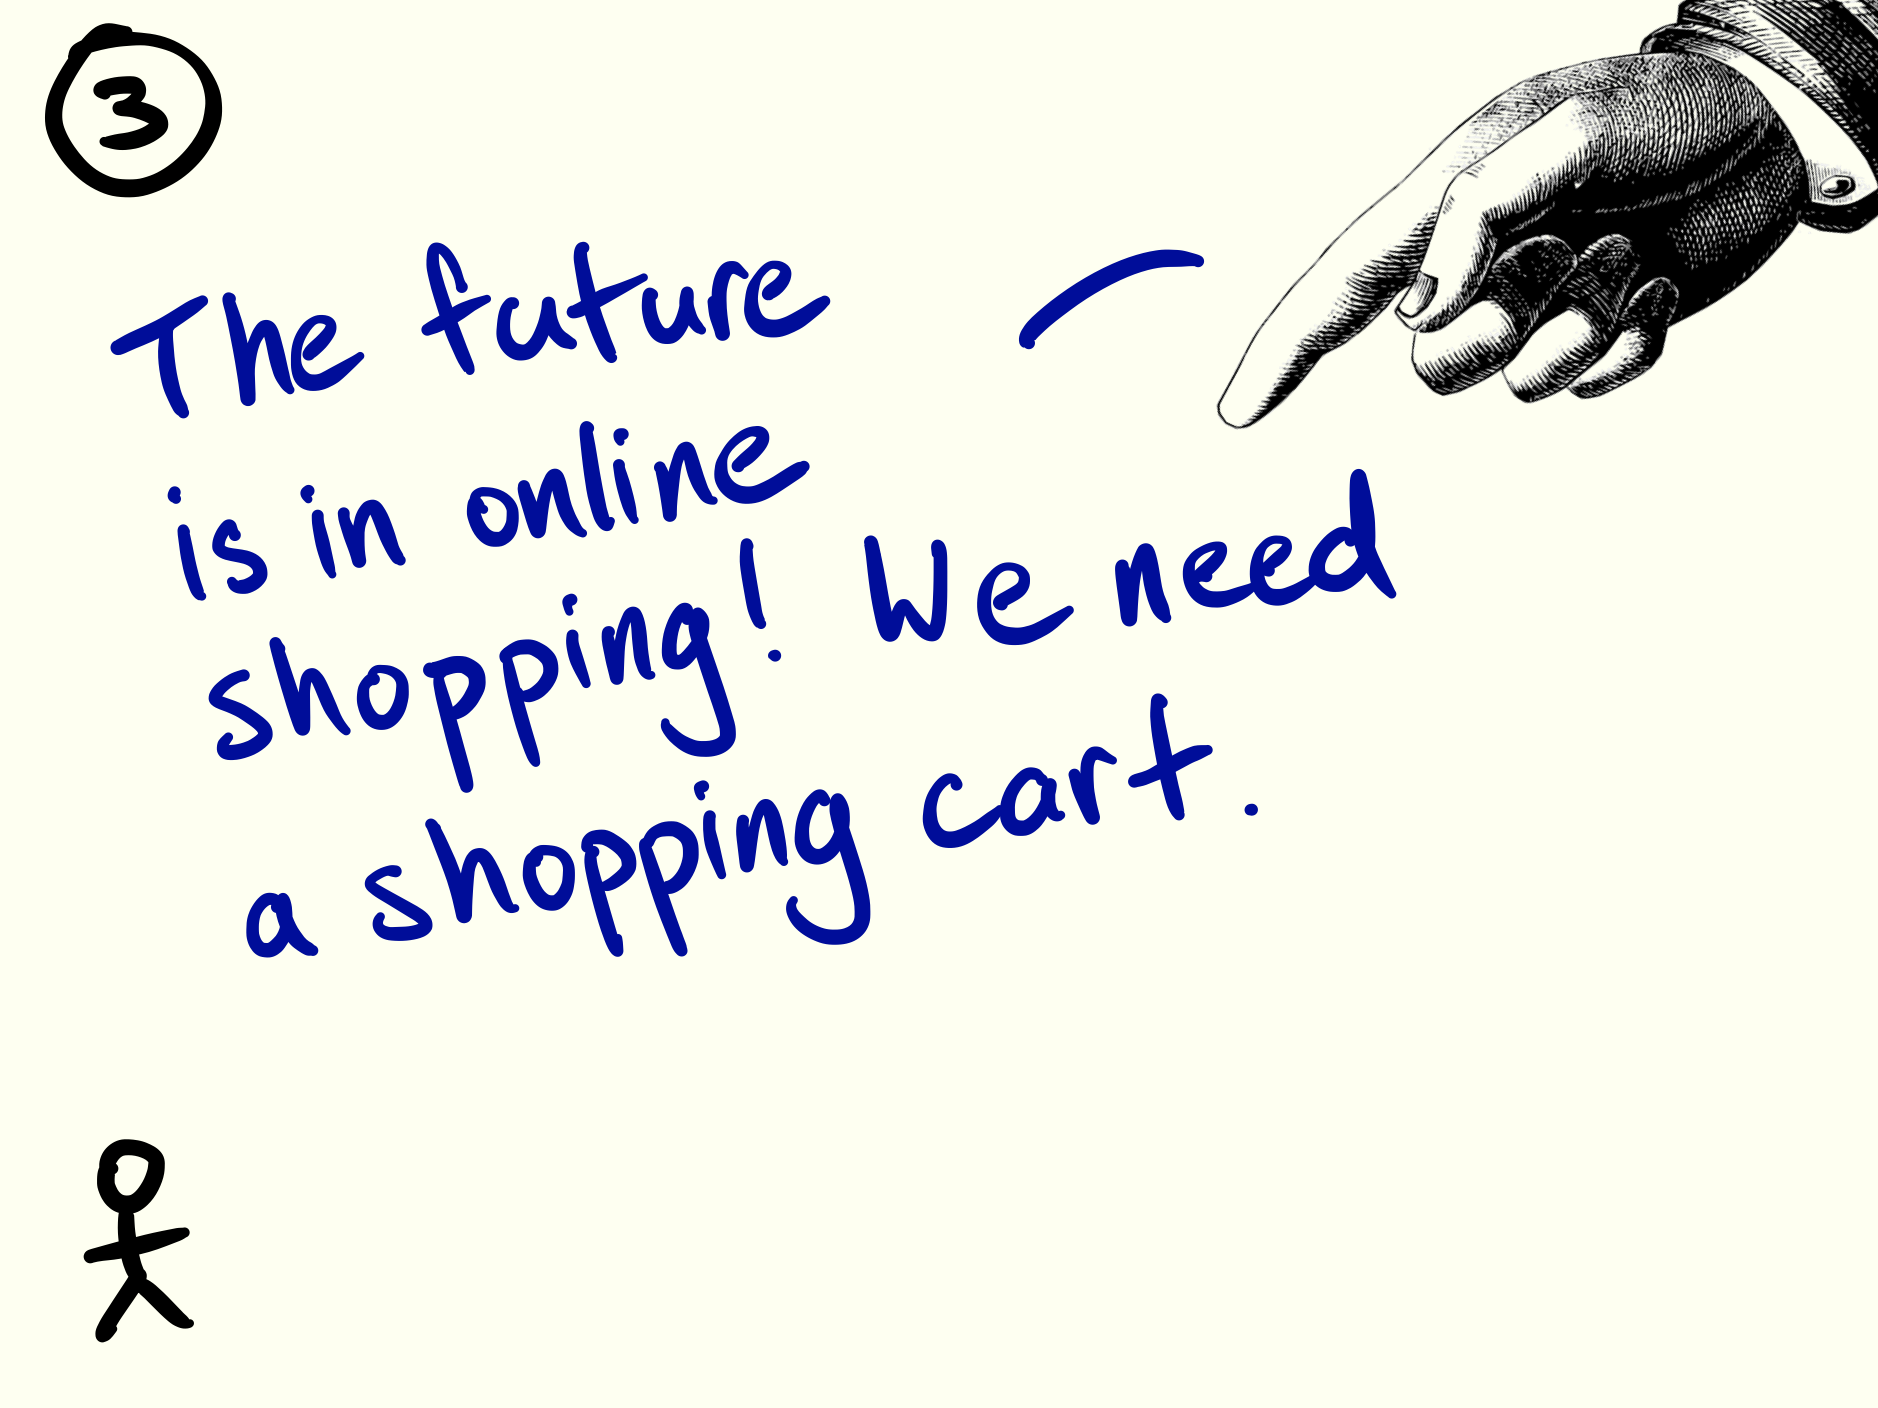 3
The future
is in online
shopping! We need
a shopping cart.